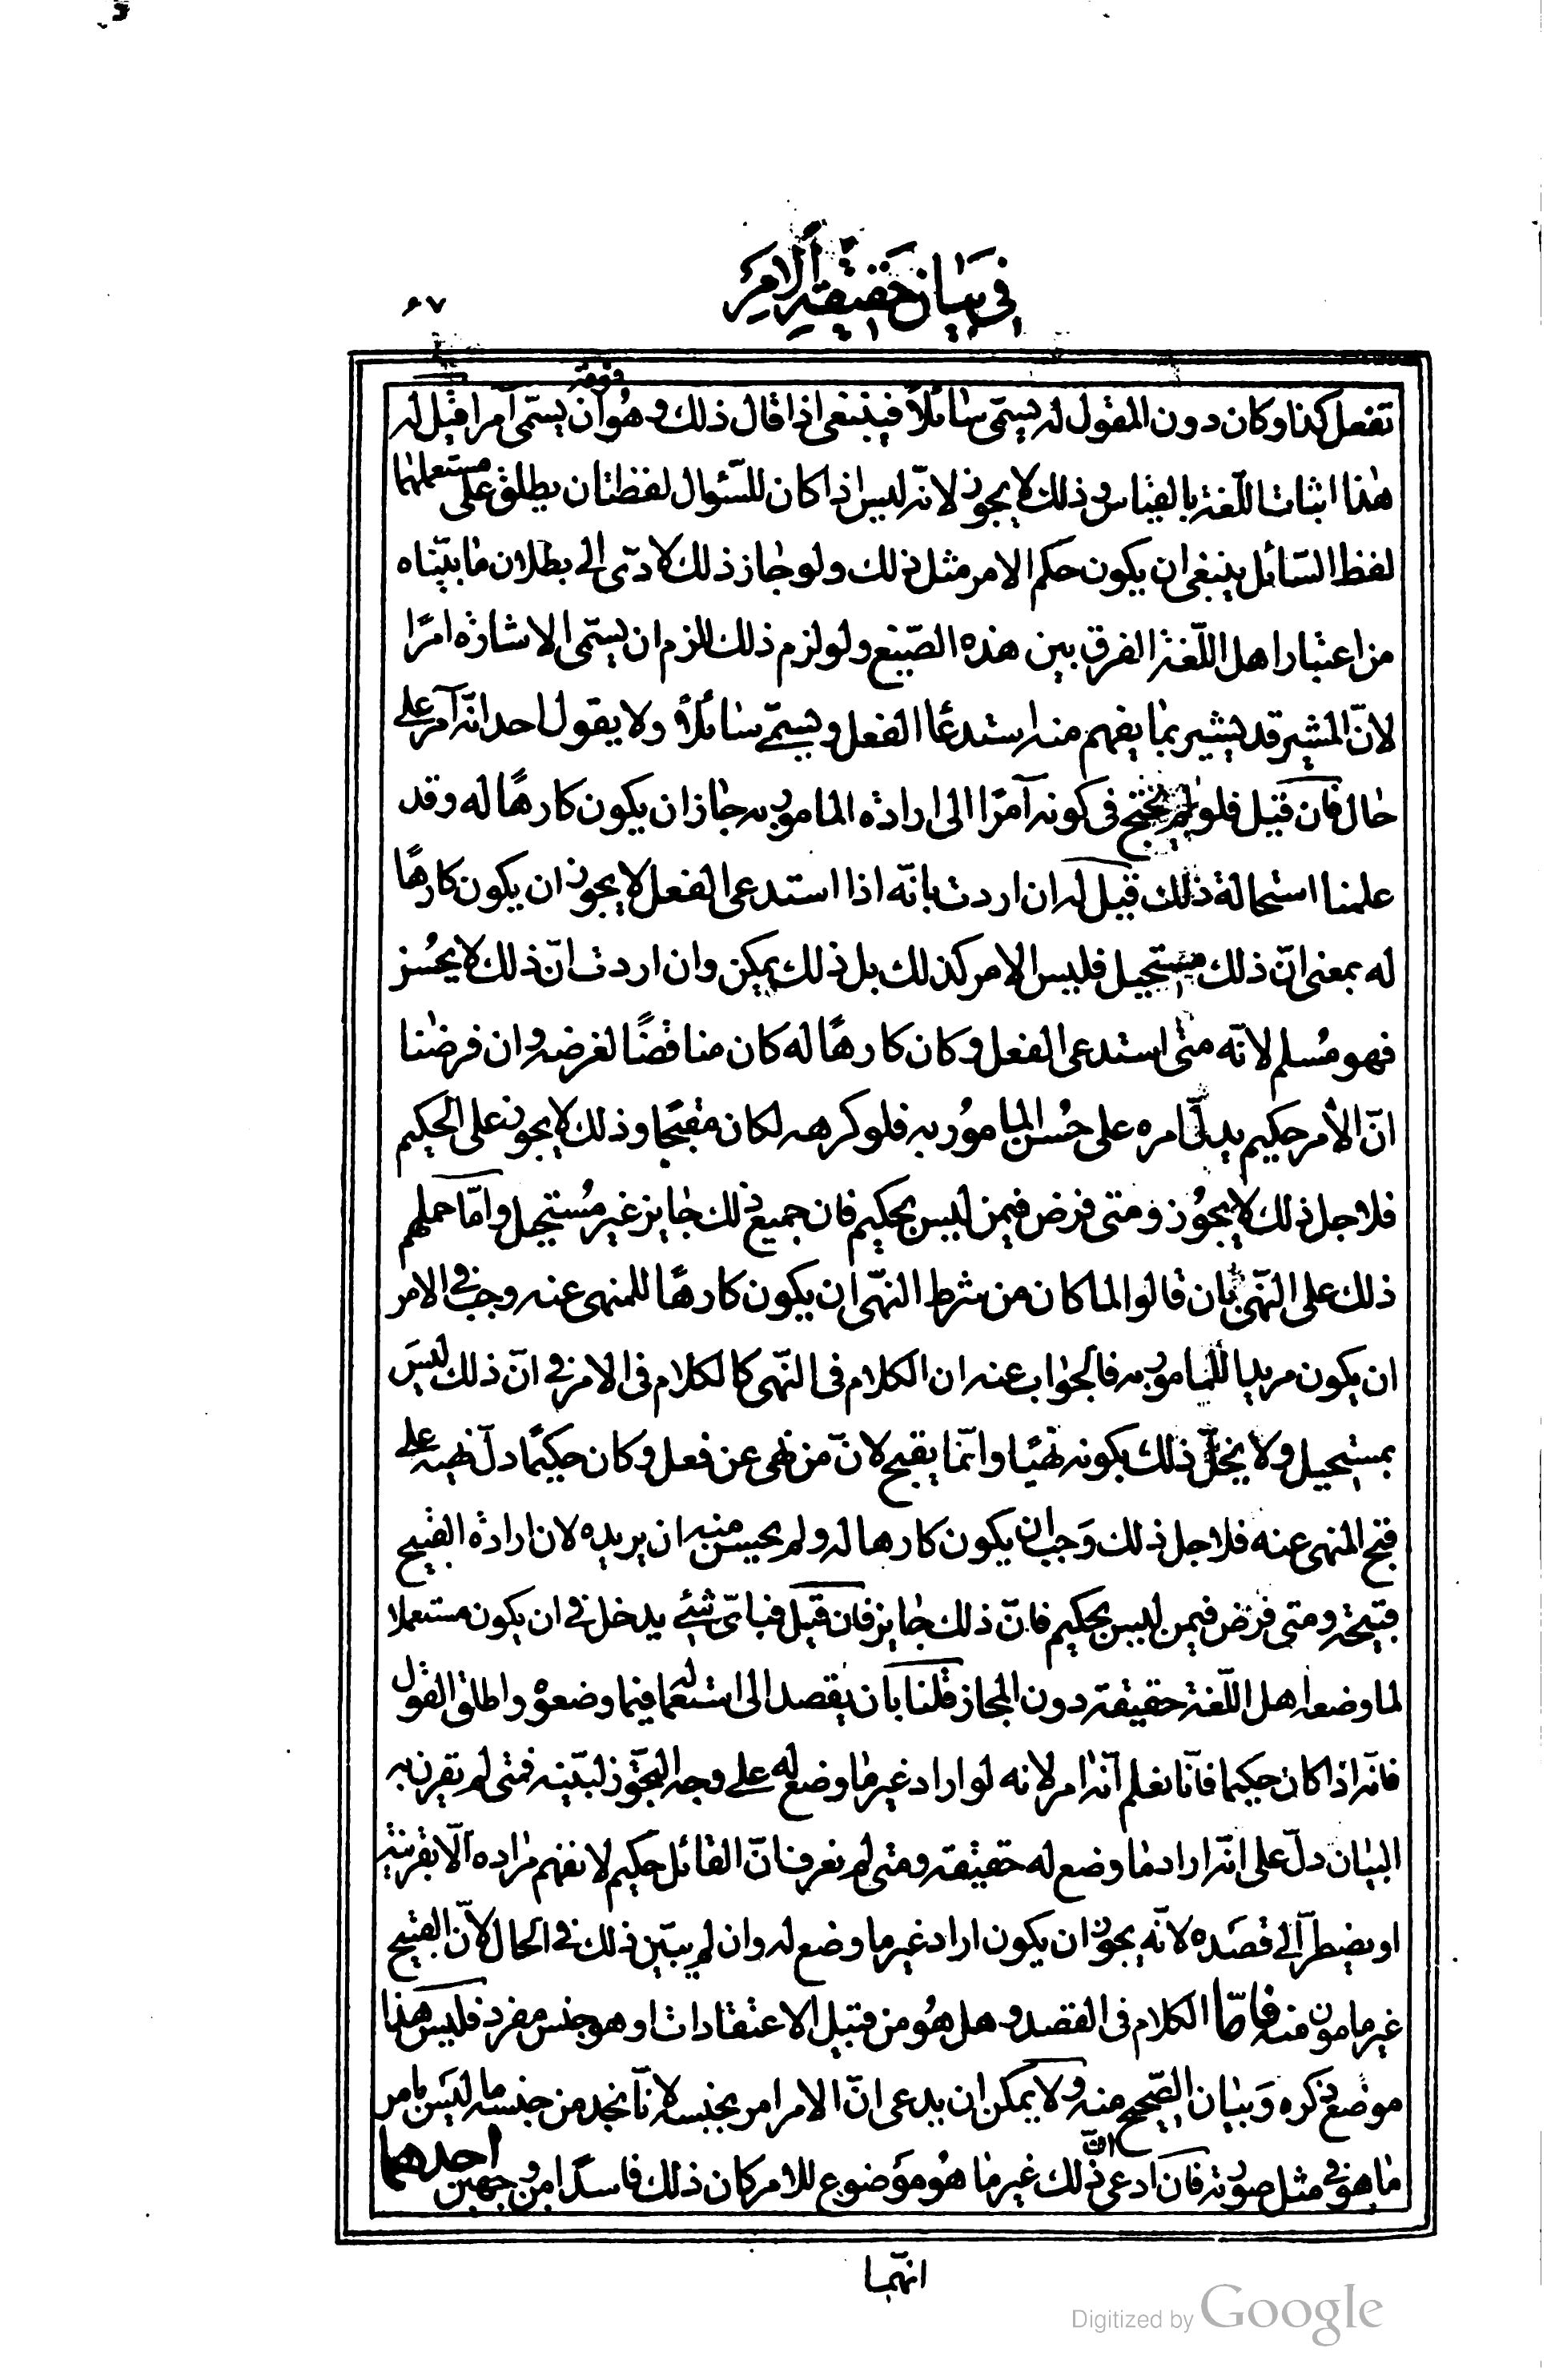 في بيان حقيقة الامر
٦٧
تفعل كذا وكان دون المقول له يسمّى سائلاً فينبغي اذا قال ذلك وهو فوقه ان يسمّى آمرا قيل له
هذا اثبات اللّغة بالقياس وذلك لا يجوز لانّه ليس اذا كان للسّئوال لفظتان يطلق على مستعملهما
لفظ السّائل ينبغي ان يكون حكم الامر مثل ذلك ولو جاز ذلك لادّى الى بطلان ما بيّناه
من اعتبار اهل اللّغة الفرق بين هذه الصّيغ ولو لزم ذلك للزم ان يسمّى الاشارة امرًا
لانّ المشير قد يشير بما يفهم منه استدعاء الفعل ويسمّى سائلاً ولا يقول احد انّه آمر على
حال فان قيل فلو لم يحتج في كونه آمرًا الى ارادة المامور به جاز ان يكون كارهًا له وقد
علمنا استحالة ذلك قيل له ان اردت بانّه اذا استدعى الفعل لا يجوز ان يكون كارهًا
له بمعنى انّ ذلك مستحيل فليس الامر كذلك بل ذلك يمكن وان اردت انّ ذلك لا يحسن
فهو مُسلم لانّه متى استدعى الفعل وكان كارهًا له كان مناقضًا لغرضه وان فرضنا
انّ الآمر حكيم يدلّ امره على حُسن المامُور به فلو كرهه لكان مقبّحا وذلك لا يجوز على الحكيم
فلاجل ذلك لا يجوُز ومتى فرض فيمن ليس بحكيم فان جميع ذلك جايز غير مُستحيل وامّا حملهم
ذلك على النّهي بان قالوا لما كان من شرط النّهي ان يكون كارهًا للمنهى عنه وجب في الامر
ان يكون مريدا للمامور به فالجواب عنه ان الكلام في النّهي كالكلام في الامر في انّ ذلك ليس
بمستحيل ولا يخلّ ذلك بكونه نهيًا وانّما يقبح لانّ من نهى عن فعل وكان حكيمًا دلّ نهيه على
قبح المنهى عنه فلاجل ذلك وَجب ان يكون كارها له ولم يحسن منه ان يريده لان ارادة القبيح
قبيحة ومتى فرض فيمن ليس بحكيم فانّ ذلك جايز فان قيل فبايّ شيء يدخل في ان يكون مستعملا
لما وضعه اهل اللّغة حقيقة دون المجاز قلنا بان يقصد الى استعماله فيما وضعوه واطلق القول
فانّه اذا كان حكيما فانّا نعلم انّه امر لانه لو اراد غير ما وضع له على وجه التجوّز لبيّنه فمتى لم تقرن به
البيان دلّ على انّه اراد ما وضع له حقيقة ومتى لم نعرف انّ القائل حكيم لا نفهم مراده الّا بقرينة
او يضطرّ الى قصَده لانّه يجوز ان يكون اراد غير ما وضع له وان لم يبيّن ذلك في الحال لانّ القبيح
غير مامون منه فامّا الكلام في القصد وهل هُو من قبيل الاعتقادات او هو جنس مفرد فليس هذا
موضع ذكره وَبيان الصّحيح منه ولا يمكن ان يدعى انّ الامر امر بجنسه لانّا نجد من جنسه ما ليس بامر
ما هو في مثل صورته فان ادعى انّ ذلك غير ما هُو موَضوع للامر كان ذلك فاسدًا من وجهين احدهما
انّهما
Digitized by Google